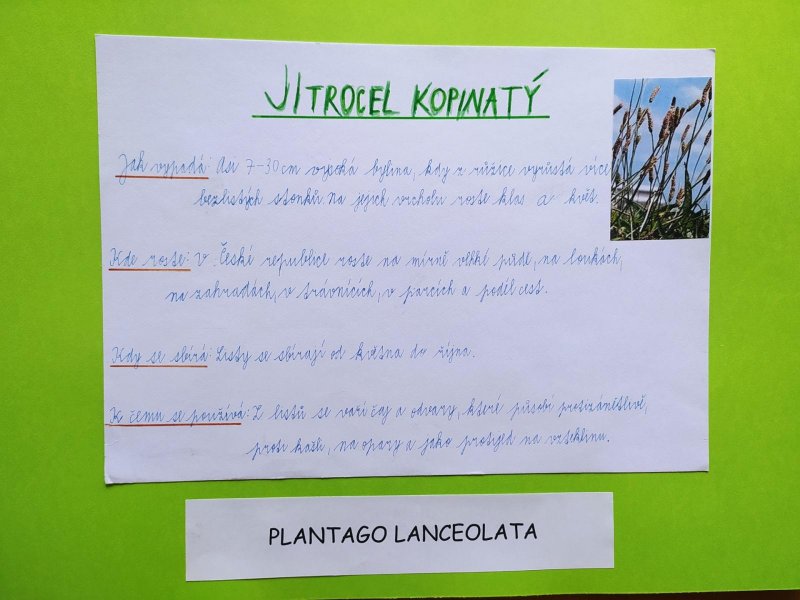 JITROCEL KOPINATÝ
Jak vypadá: Asi 7-30 cm vysoká bylina, kdy z růžice vyrůstá více
bezlistých stonků. Na jejich vrcholu roste klas a květ.
Kde roste: V České republice roste na mírně vlhké půdě, na loukách,
na zahradách, v trávnících, v parcích a podél cest.
Kdy se sbírá: Listy se sbírají od května do října.
K čemu se používá: Z listů se vaří čaj a odvary, které působí protizánětlivě,
proti kašli, na opary a jako protijed na vzteklinu.
PLANTAGO LANCEOLATA